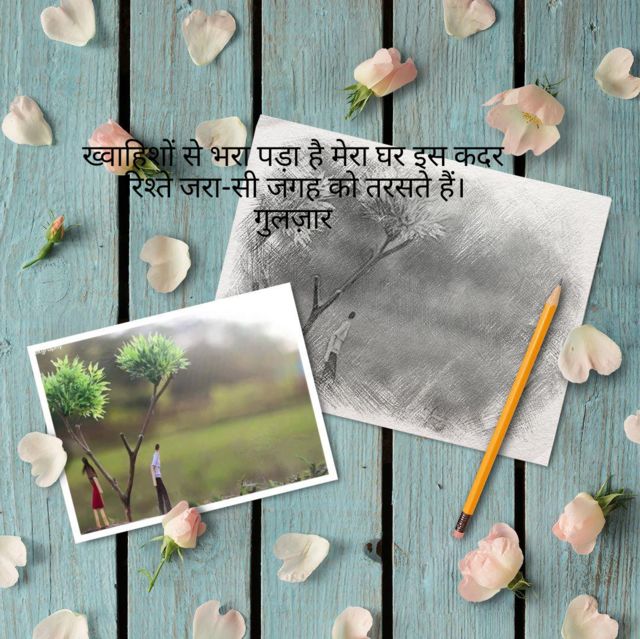 ख्वाहिशों से भरा पड़ा है मेरा घर इस कदर
रिश्ते जरा-सी जगह को तरसते हैं।
गुलज़ार